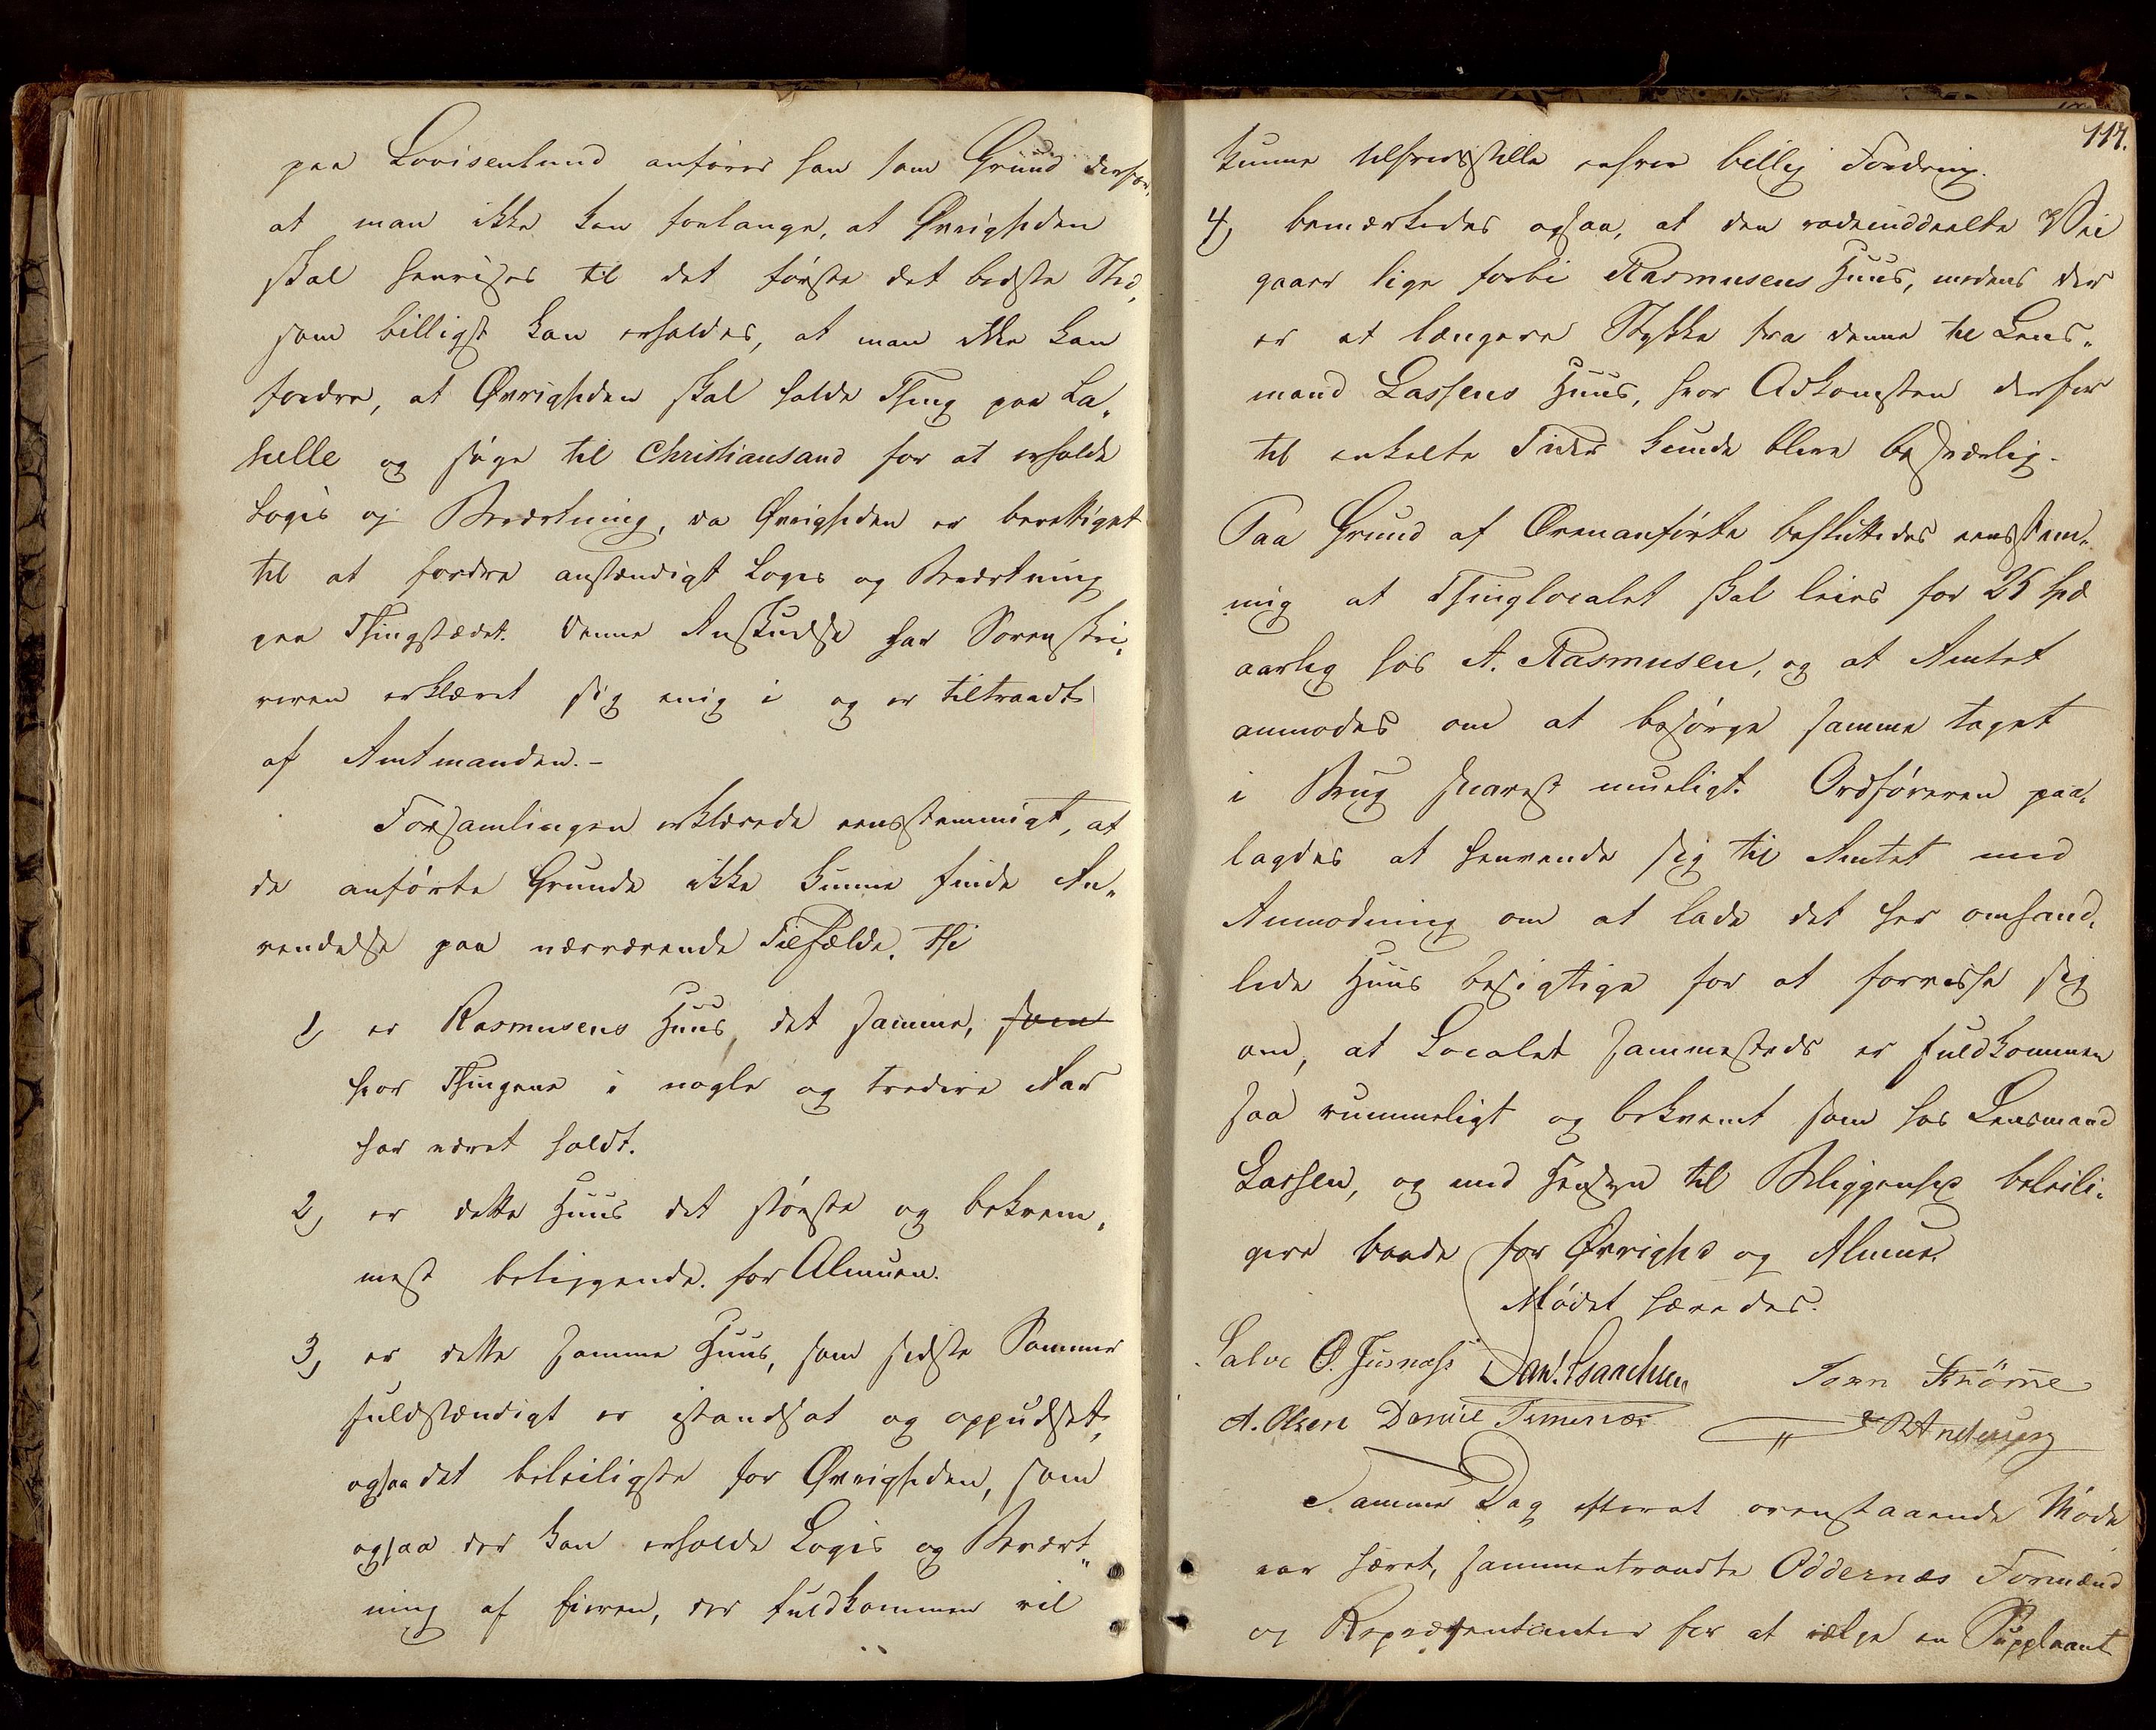 paa Lovisenlund anfører han som Grund derfor,
at man ikke kan forlange, at Øvrigheden
skal henvises til det første det bedste Sted,
som billigst kan erholdes, at man ikke kan
fordre, at Øvrigheden skal holde Thing paa La„
helle og søge til Christiansand for at erholde
Logis og Beværtning, da Øvrigheden er berettiget
til at fordre anstændigt Logis og Beværtning
paa Thingstædet. Denne Anskuelse har Sorenskri„
veren erklæret sig enig i og er tiltraadt
af Amtmanden. –
Forsamlingen erklærede eensstemmigt, at
de anførte Grunde ikke kunne finde An„
vendelse paa nærværende Tilfælde, thi
1, er Rasmusens Huus det samme, som
hvor Thingene i nogle og tredive Aar
har været holdt.
2, er dette Huus det største og bekvem„
mest beliggende for Almuen.
3, er dette samme Huus, som sidste Sommer
fuldstændigt er istandsat og oppudset,
ogsaa det beleiligste for Øvrigheden, som
ogsaa der kan erholde Logis og Bevært„
ning af Eieren, der fuldkommen vil
117.
kunne tilfredsstille enhver billig Fordring.
4, bemærkedes ogsaa, at den rodeinddeelte Vei
gaaer lige forbi Rasmusens Huus, medens der
er et længere Stykke fra denne til Lens„
mand Lassens Huus, hvor Adkomsten derfor
til enkelte Tider kunde blive besværlig.
Paa Grund af Ovenanførte besluttedes eensstem„
mig at Thinglocalet skal leies for 25 Spd
aarlig hos A. Rasmusen, og at Amtet
anmodes om at besørge samme taget
i Brug snarest mueligt. Ordføreren paa„
lagdes at henvende sig til Amtet med
Anmodning om at lade det her omhand„
lede Huus besigtige for at forvisse sig
om, at Localet sammesteds er fuldkommen
saa rummeligt og bekvemt som hos Lensmand
Lassen, og med Hensyn til Beliggenhed beleili„
gere baade for Øvrighed og Almue.
Mødet hævedes.
Salve O. Dan. Isaachsen
A. Olsen Daniel
Samme Dag efterat ovenstaaende Møde
var hævet, sammentraadte Oddernæs Formænd
og Repræsentanter for at vælge en Suppleant